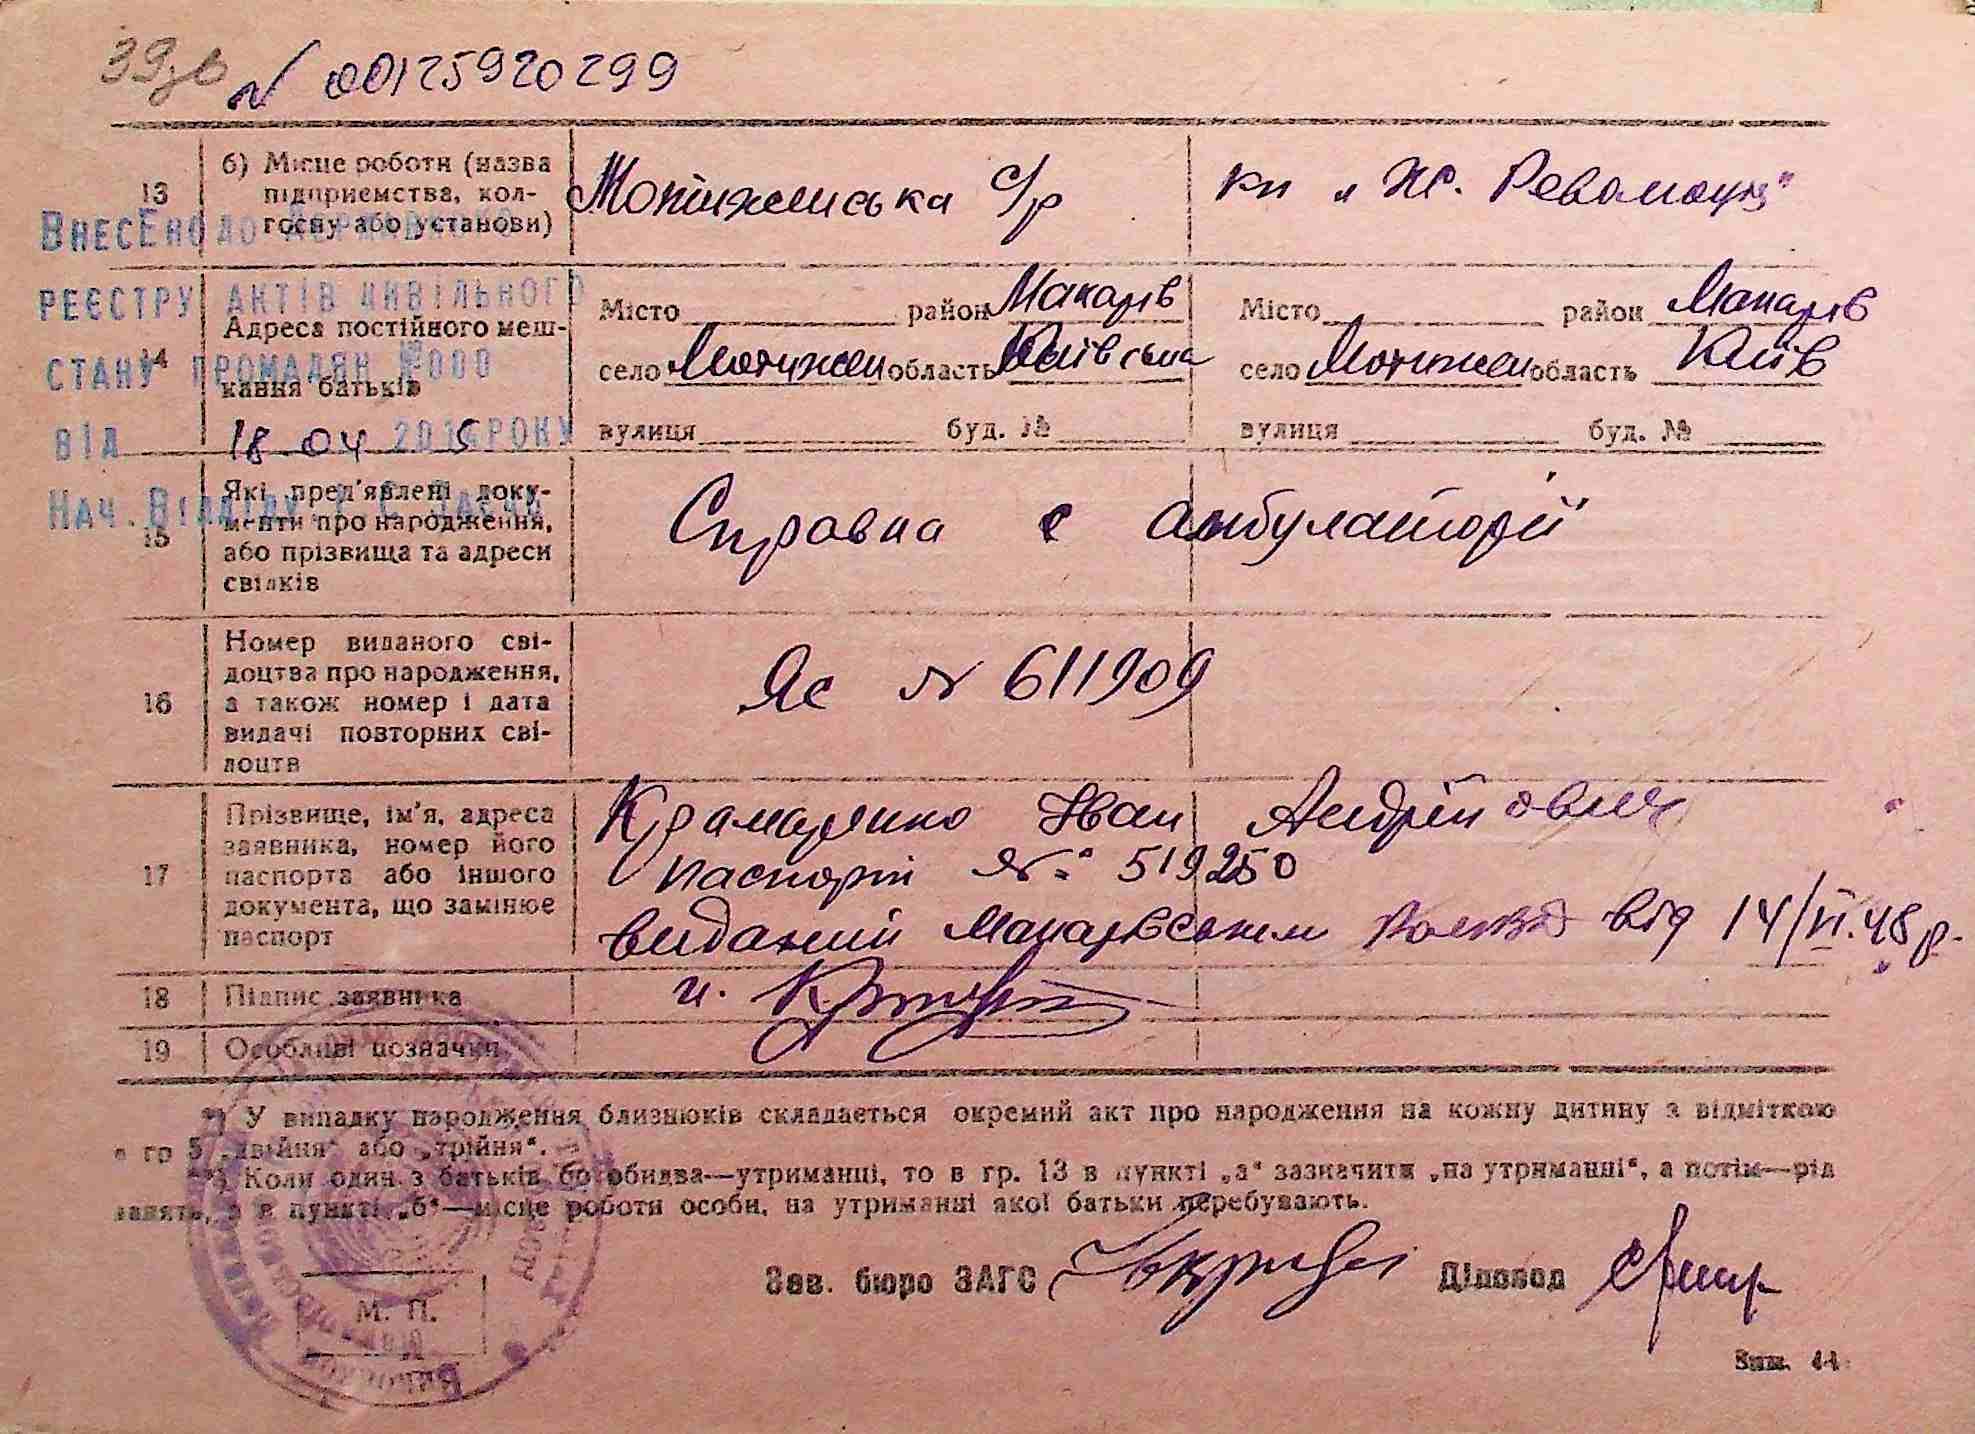 39зв № 00125920299
13 б) Місце роботи (назва
підприємства, кол-
госпу або установи)
Мотижинська с/р
кп „ Ж. Революції"
ВНЕСЕНО ДО ДЕРЖАВНОГО
РЕЄСТРУ АКТІВ ЦИВІЛЬНОГО
СТАНУ ГРОМАДЯН №000
ВІД 18 04 2015 РОКУ
НАЧ. ВІДДІЛУ
14 Адреса постійного меш-
кання батьків
Місто район Макарів
село Мотижин область Київська
вулиця буд. №
Місто район Макарів
село Мотижин область Київ
вулиця буд. №
15 Які пред'явлені доку-
менти про народження,
або прізвища та адреси
свідків
Справка с амбулаторії
16 Номер виданого сві-
доцтва про народження,
а також номер і дата
видачі повторних сві-
доцтв
Яс № 611909
17 Прізвище, ім'я, адреса
заявника, номер його
паспорта або іншого
документа, що замінює
паспорт
Крамаренко Іван Андрійович
паспорт № 519250
виданий Макарівським від 14/VI.48 р.
18 Підпис заявника
19 Особливі позначки
*) У випадку народження близнюків складається окремий акт про народження на кожну дитину з відміткою
в гр 5 „двійня" або „трійня".
**) Коли один з батьків бо обидва—утриманці, то в гр. 13 в пункті „а" зазначити „на утриманні", а потім—рід
занять, а в пункті „б"—місце роботи особи, на утриманні якої батьки перебувають.
Зав. бюро ЗАГС Діловод
М. П.
Зам. 44